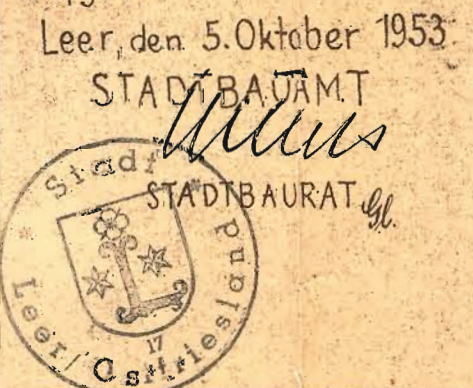 Leer, den 5. Oktober 1953
STADTBAUAMT
STADTBAURAT Gl.
Stadt
Leer/Ostfriesland
17